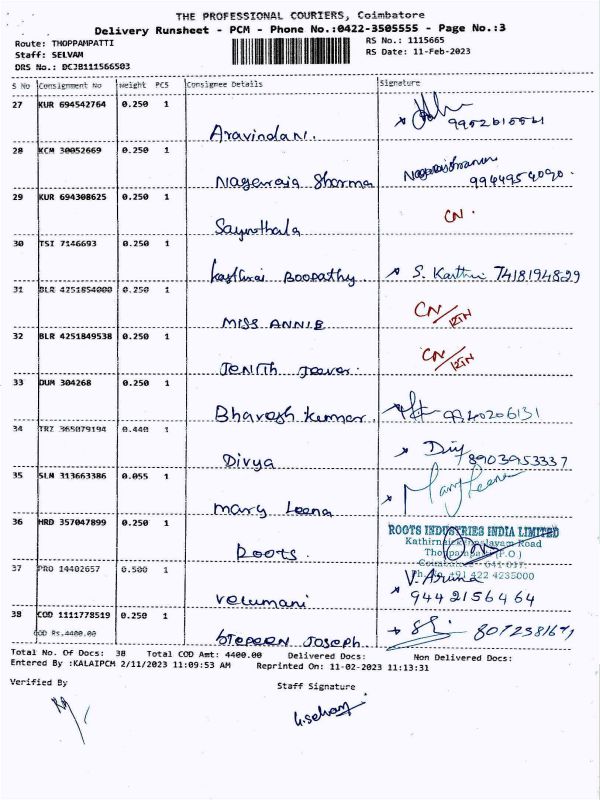 THE PROFESSIONAL COURIERS, Coimbatore
Delivery Runsheet - PCM - Phone No.:0422-3505555 - Page No.:3
Route: THOPPAMPATTI RS No.: 1115665
Staff: SELVAM RS Date: 11-Feb-2023
DRS No.: DCJB111566503
S No Consignment No Weight PCS Consignee Details Signature
27 KUR 694542764 0.250 1
Aravindan.
28 KCM 30052669 0.250 1
Nagaraja Sharma 9944954090.
29 KUR 694308625 0.250 1 CN.
30 TSI 7146693 0.250 1
Boopathy. S. Karthi 7418194829
31 BLR 4251854000 0.250 1 CN/RTN
MISS ANNIE
32 BLR 4251849538 0.250 1 CN/RTN
33 DUM 304268 0.250 1
Bharesh kumar. 9940206131
34 TRZ 365079194 0.440 1
Divya Divy 8903953337
35 SLM 313663386 0.055 1
Mary Leena Mary Leena
36 HRD 357047899 0.250 1 ROOTS INDUSTRIES INDIA LIMITED
Road
Roots. (P.O)
641 017.
+91 422 4235000
37 PRO 14402657 0.500 1
Velumani V. Aruna
9442156464
38 COD 1111778519 0.250 1
COD Rs.4400.00
STEPHEN JOSEPH
Total No. Of Docs: 38 Total COD Amt: 4400.00 Delivered Docs: Non Delivered Docs:
Entered By :KALAIPCM 2/11/2023 11:09:53 AM Reprinted On: 11-02-2023 11:13:31
Verified By Staff Signature